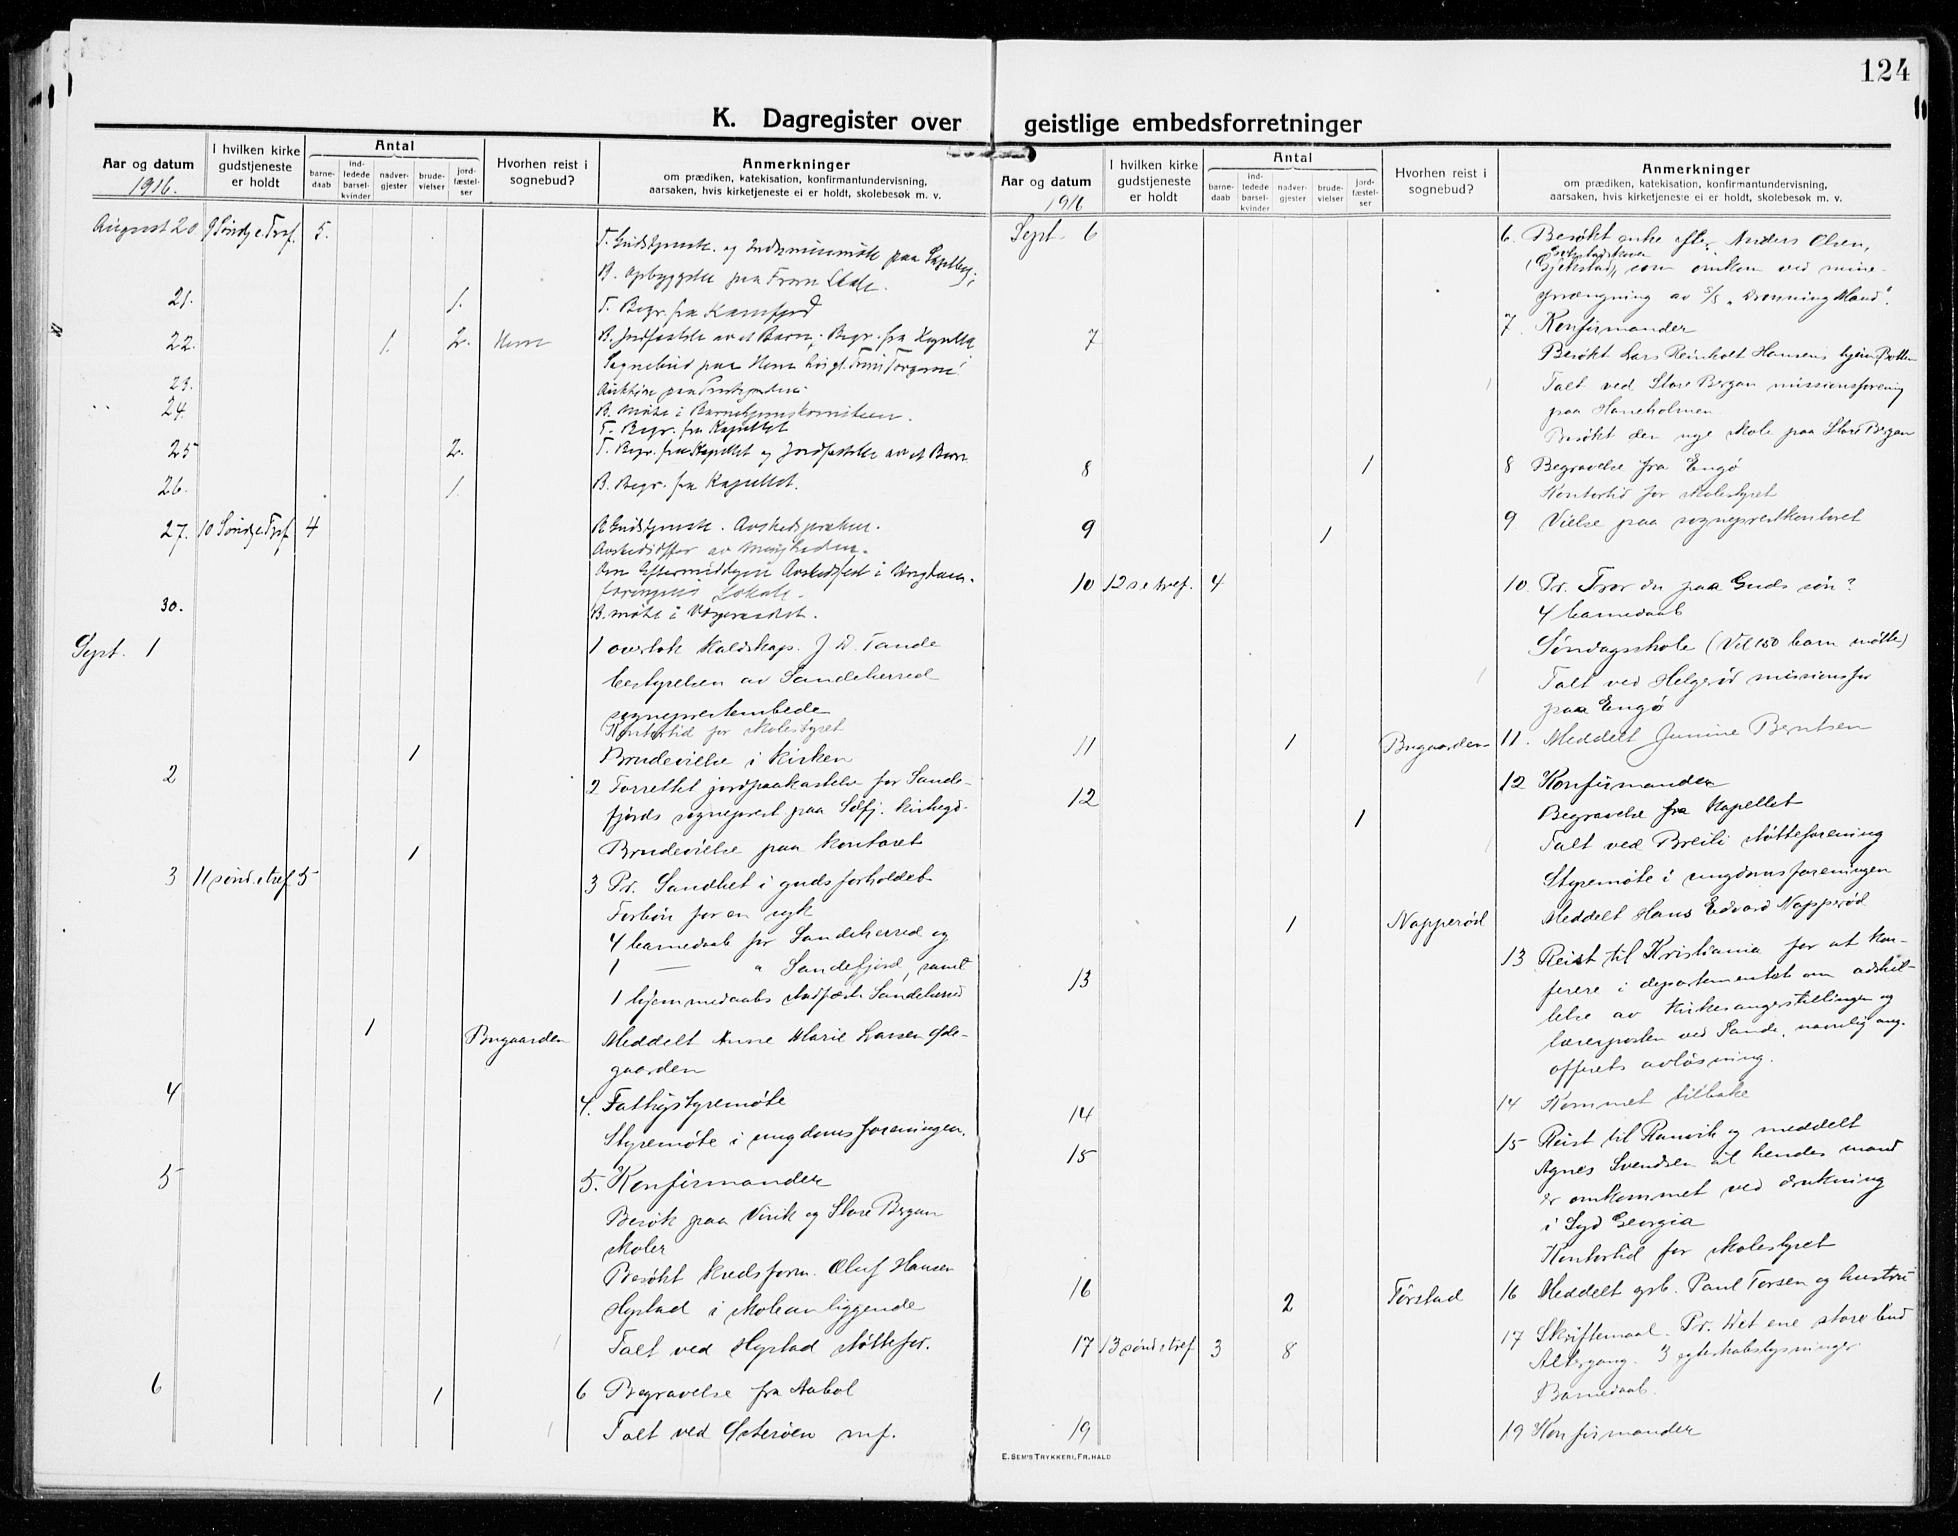 124
K. Dagregister over geistlige embedsforretninger
Aar og datum
1916.
I hvilken kirke gudstjeneste er holdt
Antal
barnedaab
indledede barselkvinder
nadvergjester
brudevielser
jordfæstelser
Hvorhen reist i sognebud?
Anmerkninger
om prædiken, katekisation, konfirmantundervisning,
aarsaken, hvis kirketjeneste ei er holdt, skolebesøk m. v.
August 20 9 Sóndg e. Tref. 5.
F. Gudstjeneste og Indremissionsmøte paa
B. Opbyggelse paa Fram Skole.
21. 1. F. Begr. fra Kamfjord
22. 1. 2. Herre B. Jordfæstelse av et Barn; Begr. fra Kapellet
Sognebud paa
23.
24 B. Møte i
F. Begr. fra Kapellet
25 2. F. Begr. fra Kapellet og Jordfæstelse av et Barn
26. 1. B. Begr. fra Kapellet.
27. 10 Søndg e. Tref 4 Gudstjeneste. Avskedspræken.
Avskedsoffer av Menigheden.
Om Eftermiddagen Avskedsfest i Ungdoms-
foreningens Lokale.
30. B. møte i Vergeraadet.
Sept. 1 1 overtok kaldskap. J. D. Tande
bestyrelsen av Sandeherred
sogneprestembede
Kontortid for skolestyret
1 Brudevielse i kirken
2 2 Forrettet jordpaakastelse for Sande-
fjords sogneprest paa Sdfj. kirkegd.
1 Brudevielse paa kontoret
3 11 sønd. e tref. 5 3 Pr. Sandhet i gudsforholdet
Forbøn for en syk
4 barnedaab for Sandeherred og
1 — " Sandefjord, samt
1 hjemmedaabs stadfæst. Sandeherred
1 Bugaarden Meddelt Anne Marie Larsen Øde-
gaarden
4 4. Fattigstyremøte
Styremøte i ungdomsforeningen.
5 5. Konfirmander
Besøk paa Virik og Store Bergan
skoler
Besøkt kredsform. Oluf Hansen
Hystad i skoleanliggende
Talt ved Hystad støttefor.
6 1 6 Begravelse fra Aabol
Talt ved Østerøen mf.
Aar og datum
1916
I hvilken kirke gudstjeneste er holdt
Antal
barnedaab
indledede barselkvinder
nadvergjester
brudevielser
jordfæstelser
Hvorhen reist i sognebud?
Anmerkninger
om prædiken, katekisation, konfirmantundervisning,
aarsaken, hvis kirketjeneste ei er holdt, skolebesøk m. v.
Sept. 6 6. Besøkt enke efter Anders Olsen,
(Gjekstad), som omkom ved mine-
sprængning av S/S "Dronning Maud".
7 7. Konfirmander
Besøkt Lars Reinholt Hansens hjem,
Talt ved Store Bergan missionsforening
paa Haneholmen.
Besøkt den nye skole paa Store Bergan
8 1 8 Begravelse fra Engø
Kontortid for skolestyret
9 1 9. Vielse paa sogneprestkontoret
10 12 s. e tref. 4 10. Pr. Tror du paa Guds søn?
4 barnedaab
Søndagsskole (Vel 150 barn møtte)
Talt ved Helgerød missionsfor
paa Engø
11 1 Bugaarden 11. Meddelt Janine Berntsen
12 12 Konfirmander
1 Begravelse fra Kapellet
Talt ved Breili støtteforening
Styremøte i ungdomsforeningen
1 Napperød Meddelt Hans Edvard Napperød
13 13 Reist til Kristiania for at kon-
ferere i departementet om adskil-
lelse av kirkesangerstillingen og
lærerposten ved Sande, navnlig ang.
offerets avløsning.
14 14 Kommet tilbake
15 15 Reist til Ranvik og meddelt
Agnes Svendsen at hendes mand
er omkommet ved drukning
i Syd Georgia
Kontortid for skolestyret
16 2 Førstad 16 Meddelt grb. Paul Torsen og hustru
17 13 sønd. e tref 3 8 17 Skriftemaal. Pr. Det ene store bud
Altergang. 3 egteskabslysninger
Barnedaab.
19 19 Konfirmander
E. SEM'S TRYKKERI, FR.HALD